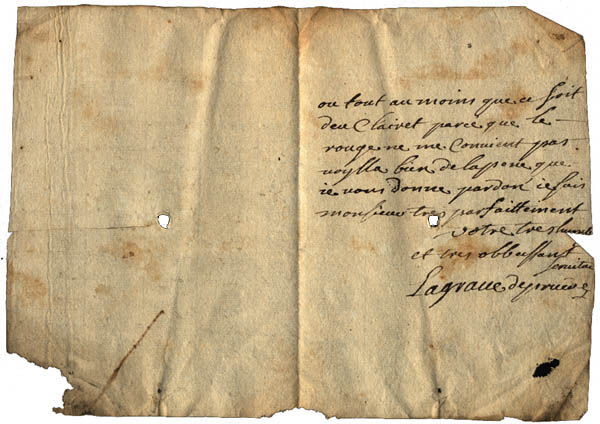 ou tout au moins que ce soit
deu Clairet parce que le
rouge ne me Convient pas
voylla bien de la pene que
ie vous donne pardon ie suis
monsieur tres parfaittement
votre tres humble
et tres obbeissant
seruiteur
Lagraue